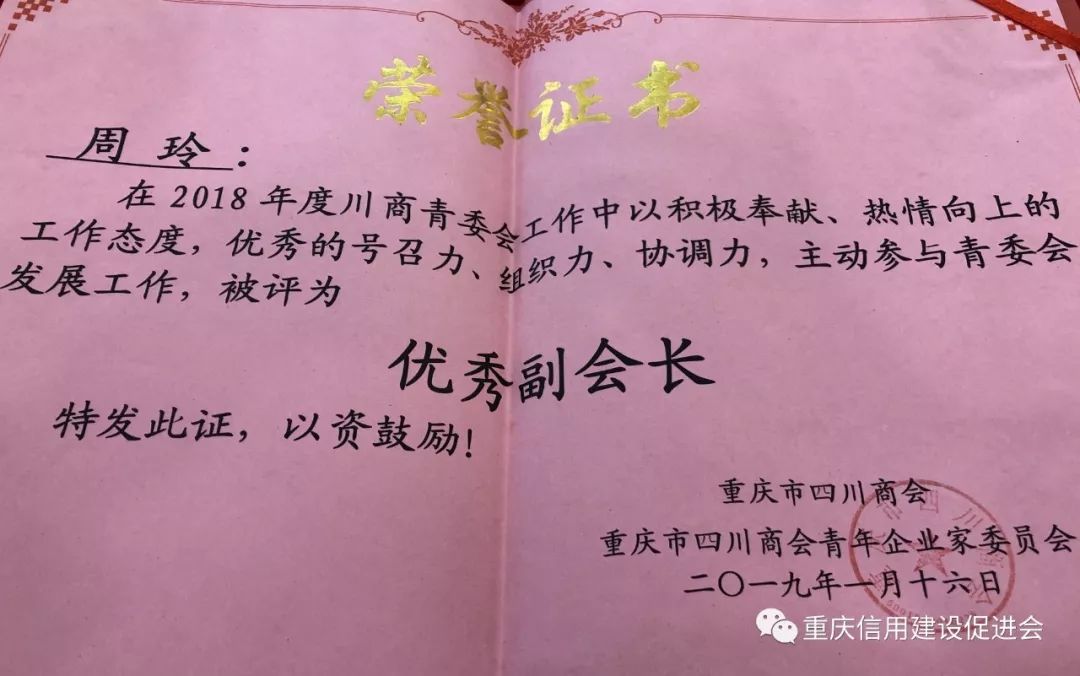 荣誉证书
周玲：
在2018年度川商青委会工作中以积极奉献、热情向上的
工作态度，优秀的号召力、组织力、协调力，主动参与青委会
发展工作，被评为
优秀副会长
特发此证，以资鼓励！
重庆市四川商会
重庆市四川商会青年企业家委员会
二〇一九年一月十六日
重庆信用建设促进会